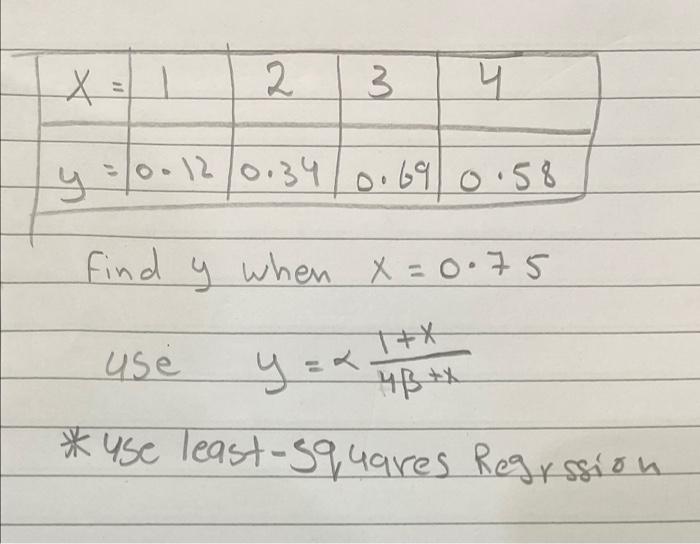 x = 1 2 3 4
y = 0.12 0.34 0.69 0.58
find y when x = 0.75
use y = α (1+x)/(4β+x)
* use least-squares Regrssion